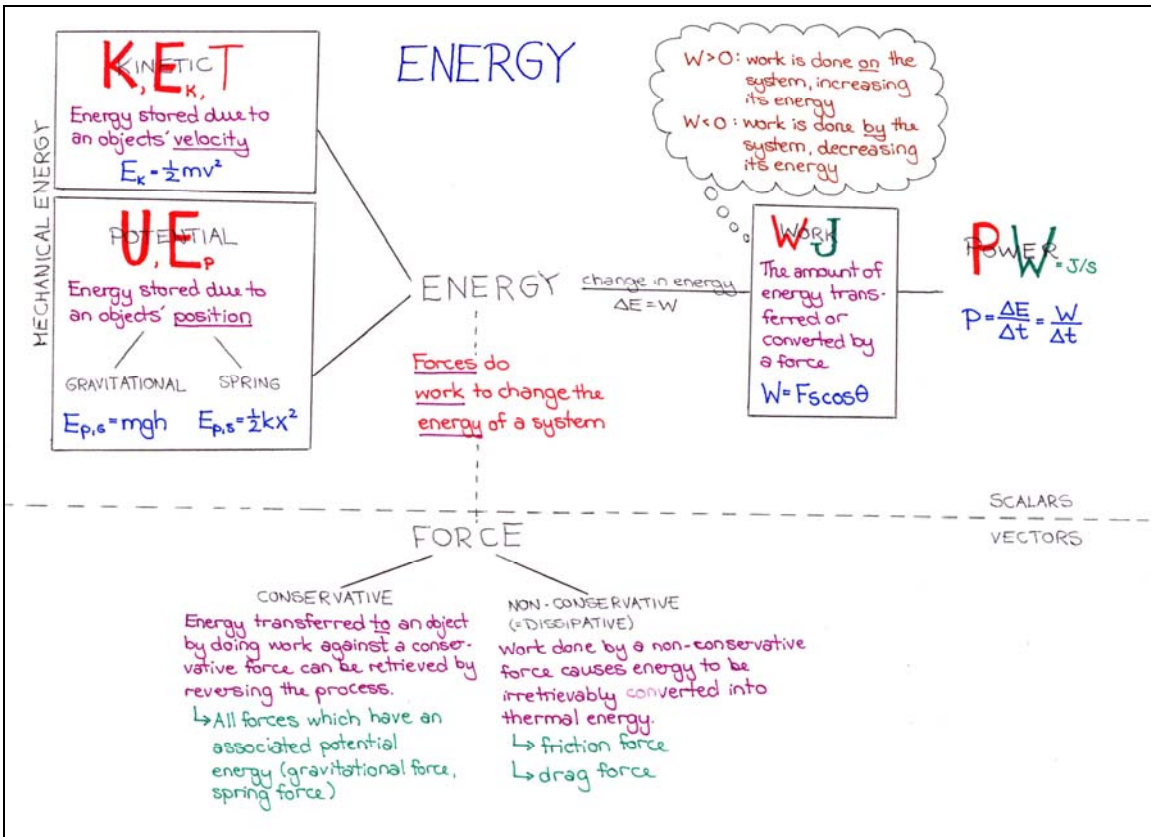 ENERGY
MECHANICAL ENERGY
KINETIC
K, E_K, T
Energy stored due to
an objects' velocity
E_K = ½mv²
POTENTIAL
U, E_P
Energy stored due to
an objects' position
GRAVITATIONAL
E_{P,G} = mgh
SPRING
E_{P,S} = ½kx²
ENERGY
change in energy
ΔE = W
W>0: work is done on the
system, increasing
its energy
W<0: work is done by the
system, decreasing
its energy
WORK
W J
The amount of
energy trans-
ferred or
converted by
a force
W = Fscosθ
POWER
P W = J/s
P = ΔE/Δt = W/Δt
Forces do
work to change the
energy of a system
SCALARS
VECTORS
FORCE
CONSERVATIVE
Energy transferred to an object
by doing work against a conser-
vative force can be retrieved by
reversing the process.
↳ All forces which have an
associated potential
energy (gravitational force,
spring force)
NON-CONSERVATIVE
(=DISSIPATIVE)
Work done by a non-conservative
force causes energy to be
irretrievably converted into
thermal energy.
↳ friction force
↳ drag force